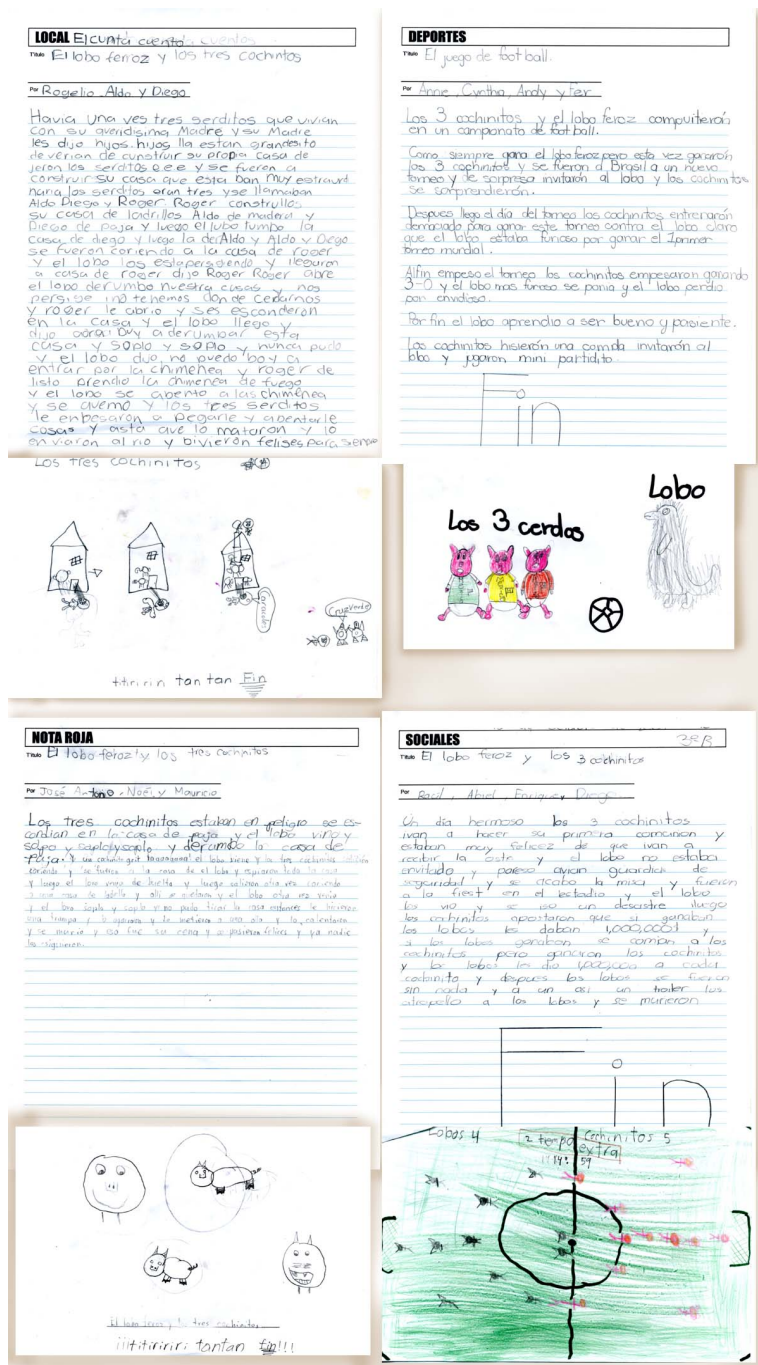 LOCAL El cuenta cuentos
Título El lobo feroz y los tres cochinitos
Por Rogelio, Aldo y Diego
Havia una ves tres serditos que vivian
con su queridisima Madre y su Madre
les dijo hijos, hijos lla estan grandesito
deverian de cunstruir su propia casa de
jeron los serditos eee y se fueron a
construir su casa que esta ban muy
los serditos eran tres y se llamaban
Aldo Diego y Roger Roger construllo
su casa de ladrillos Aldo de madera y
Diego de paja y luego el lubo tumbo la
casa de diego y luego la de Aldo y Aldo y Diego
se fueron coriendo a la casa de roger
y el lobo los
a casa de roger dijo Roger Roger abre
el lobo derumbo nuestra casas y nos
persige ino tenemos donde
y roger le abrio y ses esconderon
en la casa y el lobo llego y
dijo aora: buy a derumbar esta
casa y soplo y soplo y nunca pudo
y el lobo dijo, no puedo boy a
entrar por la chimenea y roger de
listo prendio la chimenea de fuego
y el lobo se abento a las chiminea
y se quemo y los tres serditos
le enpesaron a pegarle y abentarle
cosas y asta que lo mataron y lo
enviaron al rio y bivieron felises para
Los tres cochinitos
Cruz verde
titiririn tan tan Fin
DEPORTES
Título El juego de foot ball.
Por Anne, Cynthia, Andy y Fer
Los 3 cochinitos y el lobo feroz compuiteron
en un campionato de foot ball.
Como siempre gana el lobo feroz pero esta vez ganaron
los 3 cochinitos y se fueron a Brasil a un nuevo
torneo y de sorpresa invitaron al lobo y los cochinitos
se sorprendieron.
Despues llego el dia del torneo los cochinitos entrenaron
demaciado para ganar este torneo contra el lobo claro
que el lobo estaba furioso por ganar el 1 primer
torneo mundial.
Alfin empeso el torneo los cochinitos empesaron ganando
3-0 y el lobo mas furioso se ponia y el lobo perdio
por envidioso.
Por fin el lobo aprendio a ser bueno y pasiente.
Los cochinitos hisierón una comida invitarón al
lobo y jugaron mini partidito.
Fin
Los 3 cerdos
Lobo
NOTA ROJA
Título El lobo feroz y los tres cochinitos
Por José Antonio, Noéi, y Mauricio
Los tres cochinitos estaban en peligro se es-
condian en la casa de paja y el lobo vino y
solpo y soplo y soplo y derumbo la casa de
paja. y un cochinito el lobo viene y los tres cochinitos
coriendo y se fueron a la casa de el lobo y
y luego el lobo vino de buelta y luego salieron otra ves coriendo
a una casa de ladrillo y alli se quedaron y el lobo otra vez vino
y el lobo soplo y soplo y no pudo tirar la casa entonces le hicieron
una trampa y lo agararon y lo metieron a una olla y la calentaron
y se murio y esa fue su cena y se pusieron felices y ya nadie
los siguieron.
El lobo feroz y los tres cochinitos
¡¡¡titiririri tantan fin!!!
SOCIALES
3º B
Título El lobo feroz y los 3 cochinitos
Por Raúl, Abiel, Enrique y Diego
Un día hermoso los 3 cochinitos
ivan a hacer su primera comunion y
estaban muy felicez de que ivan a
recibir la ostie y el lobo no estaba
envitado y pareso avian guardias de
seguridad y se acabo la misa y fueron
a la fiest en el estadio y el lobo
los vio y se iso un desastre luego
los cochinitos apostaron que si ganaban
los lobos les daban 1,000,000 y
si los lobos ganaban se comian a los
cochinitos pero ganaron los cochinitos
y los lobos les dio 1,000,000 a cada
cochinito y despues los lobos se fueron
sin nada y a un asi un trailer los
atropello a los lobos y se murieron
Fin
Lobos 4
2 tiempo
extra
Cochinitos 5